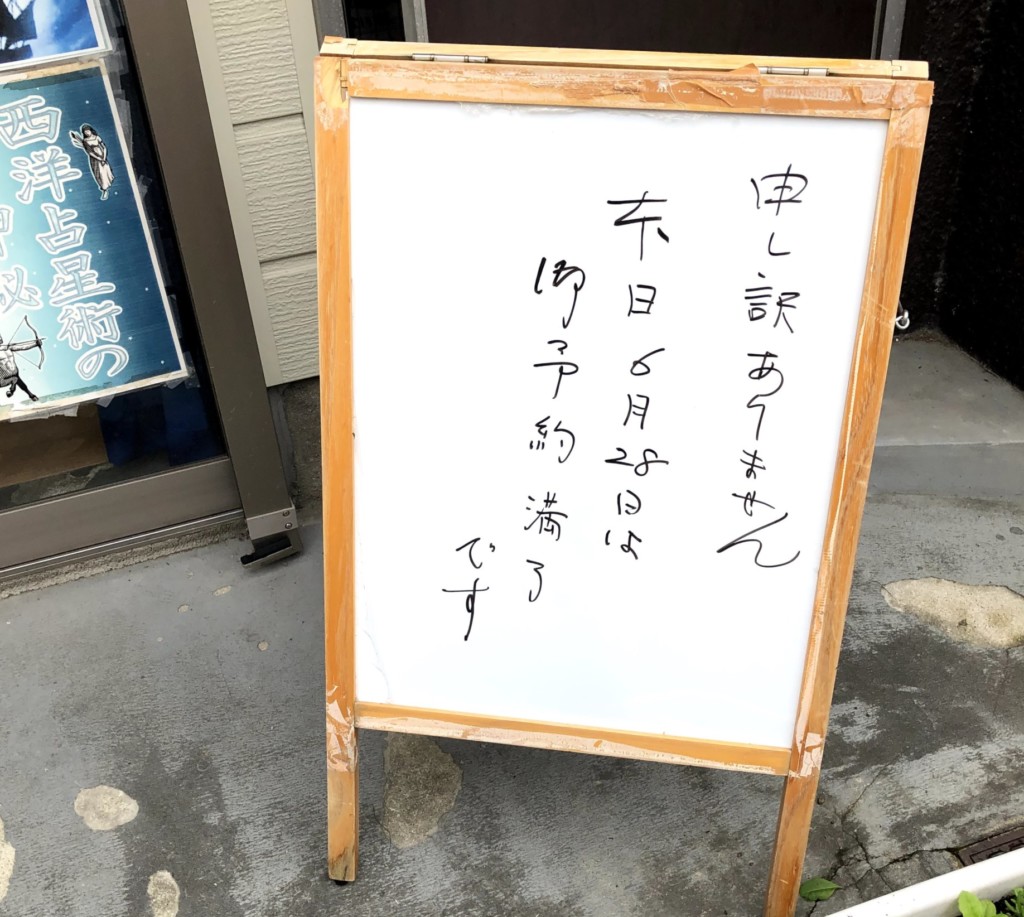 申し訳ありません
本日6月28日は
御予約満了
です
西洋占星術の